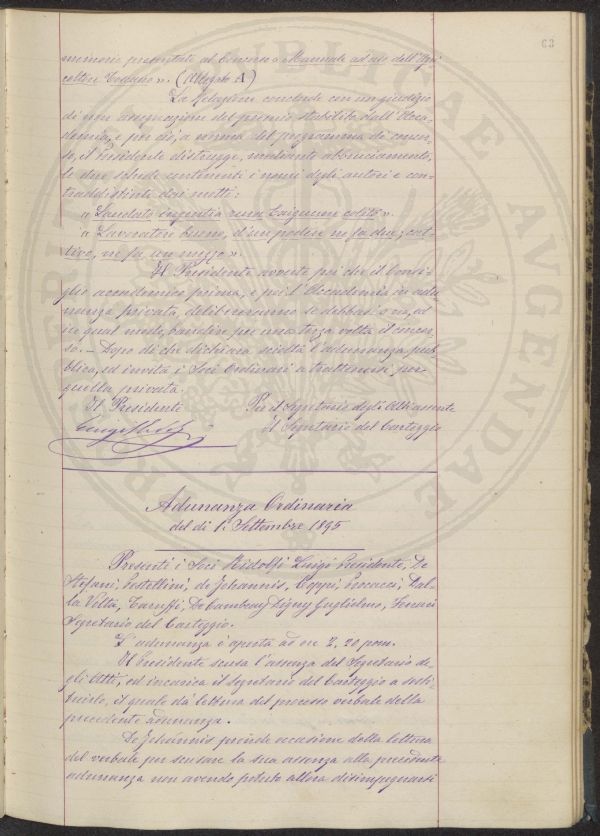 63
memorie presentate al Concorso « Manuale ad uso dell'Agri
coltore Toscano ». (Allegato A)
La Relazione conclude con un giudizio
di non assegnazione del premio stabilito dall'Acca-
demia, e per ciò, a norma del programma di concor-
so, il Presidente distrugge, mediante abbruciamento,
le due schede contenenti i nomi degli autori e con-
traddistinte dai motti:
« Laudato ingentia rura Exiguum colito ».
« Lavoratore buono, d'un podere ne fa due; cat-
tivo, ne fa un mezzo ».
Il Presidente avverte poi che il Consi-
glio accademico prima, e poi l'Accademia in adu-
nanza privata, delibereranno se debbasi o no, ed
in qual modo, bandire per una terza volta il concor-
so. – Dopo di che dichiara sciolta l'adunanza pub
blica, ed invita i Soci Ordinari a trattenersi per
quella privata.
Il Presidente Per il Segretario degli Atti assente
Il Segretario del Carteggio
Adunanza Ordinaria
del dì 1: Settembre 1895
Presenti i Soci Ridolfi Luigi Presidente, De
Stefani, Pestellini, de Johannis, Coppi, Dal-
la Volta, Caruffi, De Cambray Digny Guglielmo,
Segretario del Carteggio.
L'adunanza è aperta ad ore 2,20 pom.
Il Presidente scusa l'assenza del Segretario de-
gli Atti, ed incarica il segretario del Carteggio a sosti-
tuirlo, il quale dà lettura del processo verbale della
precedente adunanza.
De Johannis prende occasione della lettura
del verbale per scusare la sua assenza alla precedente
adunanza non avendo potuto allora disimpegnarsi